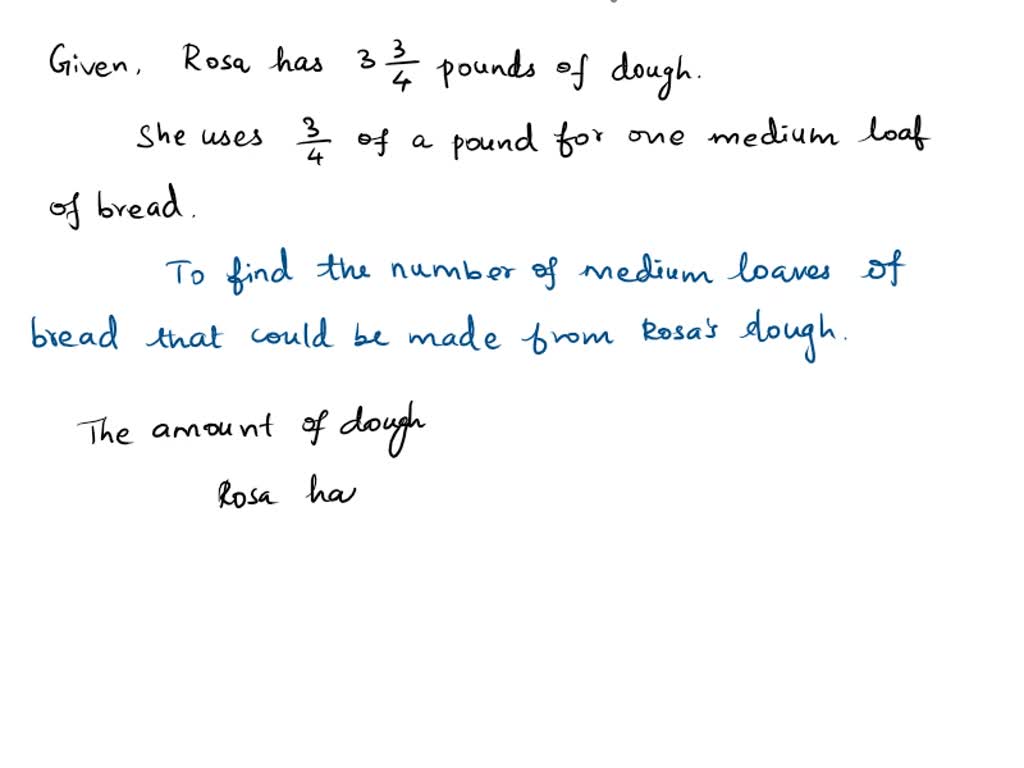 Given, Rosa has 3 3/4 pounds of dough.
She uses 3/4 of a pound for one medium loaf
of bread.
To find the number of medium loaves of
bread that could be made from Rosa's dough.
The amount of dough
Rosa ha